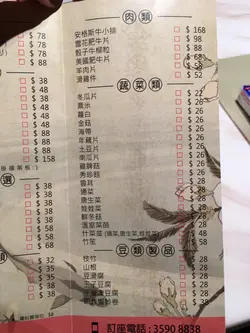 $ 78
$ 78
$ 88
$ 88
肉類
安格斯牛小排 $ 168
雪花肥牛片 $ 98
骰子牛柳粒 $ 88
美國肥牛片 $ 68
羊肉片 $ 58
滑雞件 $ 52
$ 38
$ 48
$ 38
$ 38
$ 38
$ 48
$ 48
$ 38
$ 88
$ 158
蔬菜類
冬瓜片 $ 22
粟米 $ 22
蘿白 $ 22
金菇 $ 22
海帶 $ 22
年藕片 $ 22
土豆片 $ 22
南瓜片 $ 22
雞髀菇 $ 26
秀珍菇 $ 26
雲耳 $ 26
通菜 $ 28
唐生菜 $ 28
娃娃菜 $ 28
鮮冬菇 $ 28
$ 28
什菜籃 $ 58
竹笙 $ 58
選
$ 38
$ 38
$ 38
$ 38
$ 38
$ 38
豆類製品
枝竹 $ 28
山根 $ 28
豆滑腐 $ 28
玉子豆腐 $ 28
$ 28
$ 38
類
$ 32
$ 35
$ 52
$ 54
訂座電話 : 3590 8838